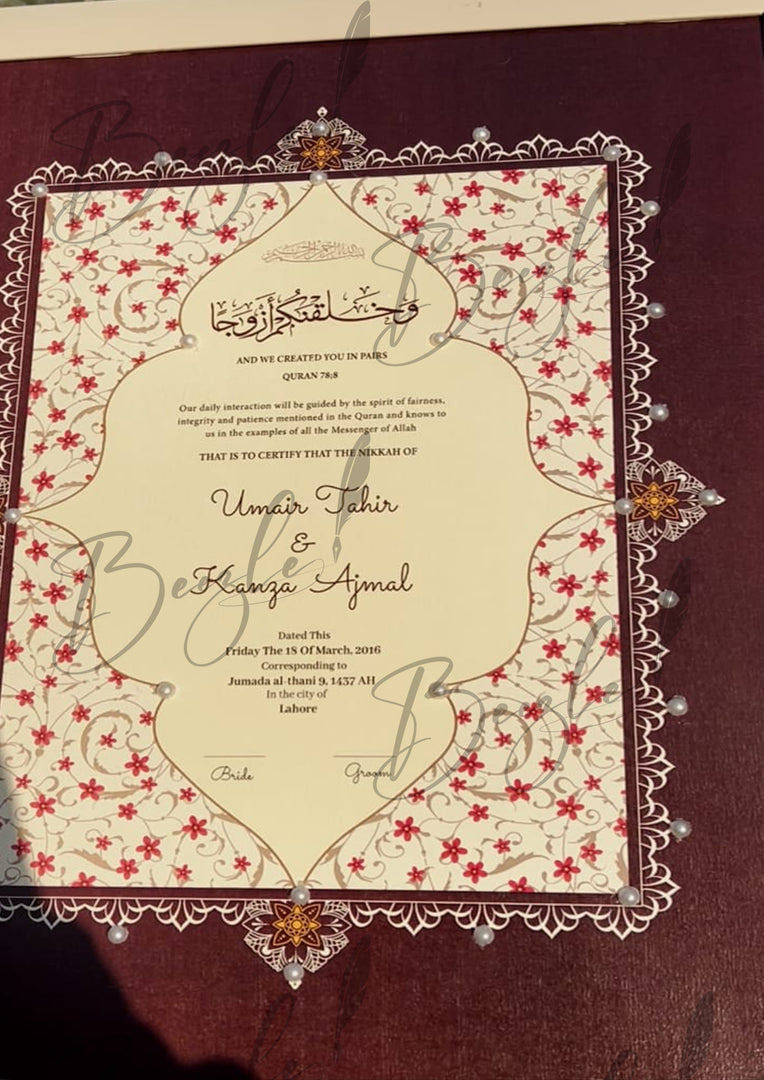 بسم الله الرحمن الرحيم
وَخَلَقْنَٰكُمْ أَزْوَٰجًا
AND WE CREATED YOU IN PAIRS
QURAN 78;8
Our daily interaction will be guided by the spirit of fairness,
integrity and patience mentioned in the Quran and knows to
us in the examples of all the Messenger of Allah
THAT IS TO CERTIFY THAT THE NIKKAH OF
Umair Tahir
&
Kanza Ajmal
Dated This
Friday The 18 Of March, 2016
Corresponding to
Jumada al-thani 9, 1437 AH
In the city of
Lahore
Bride Groom